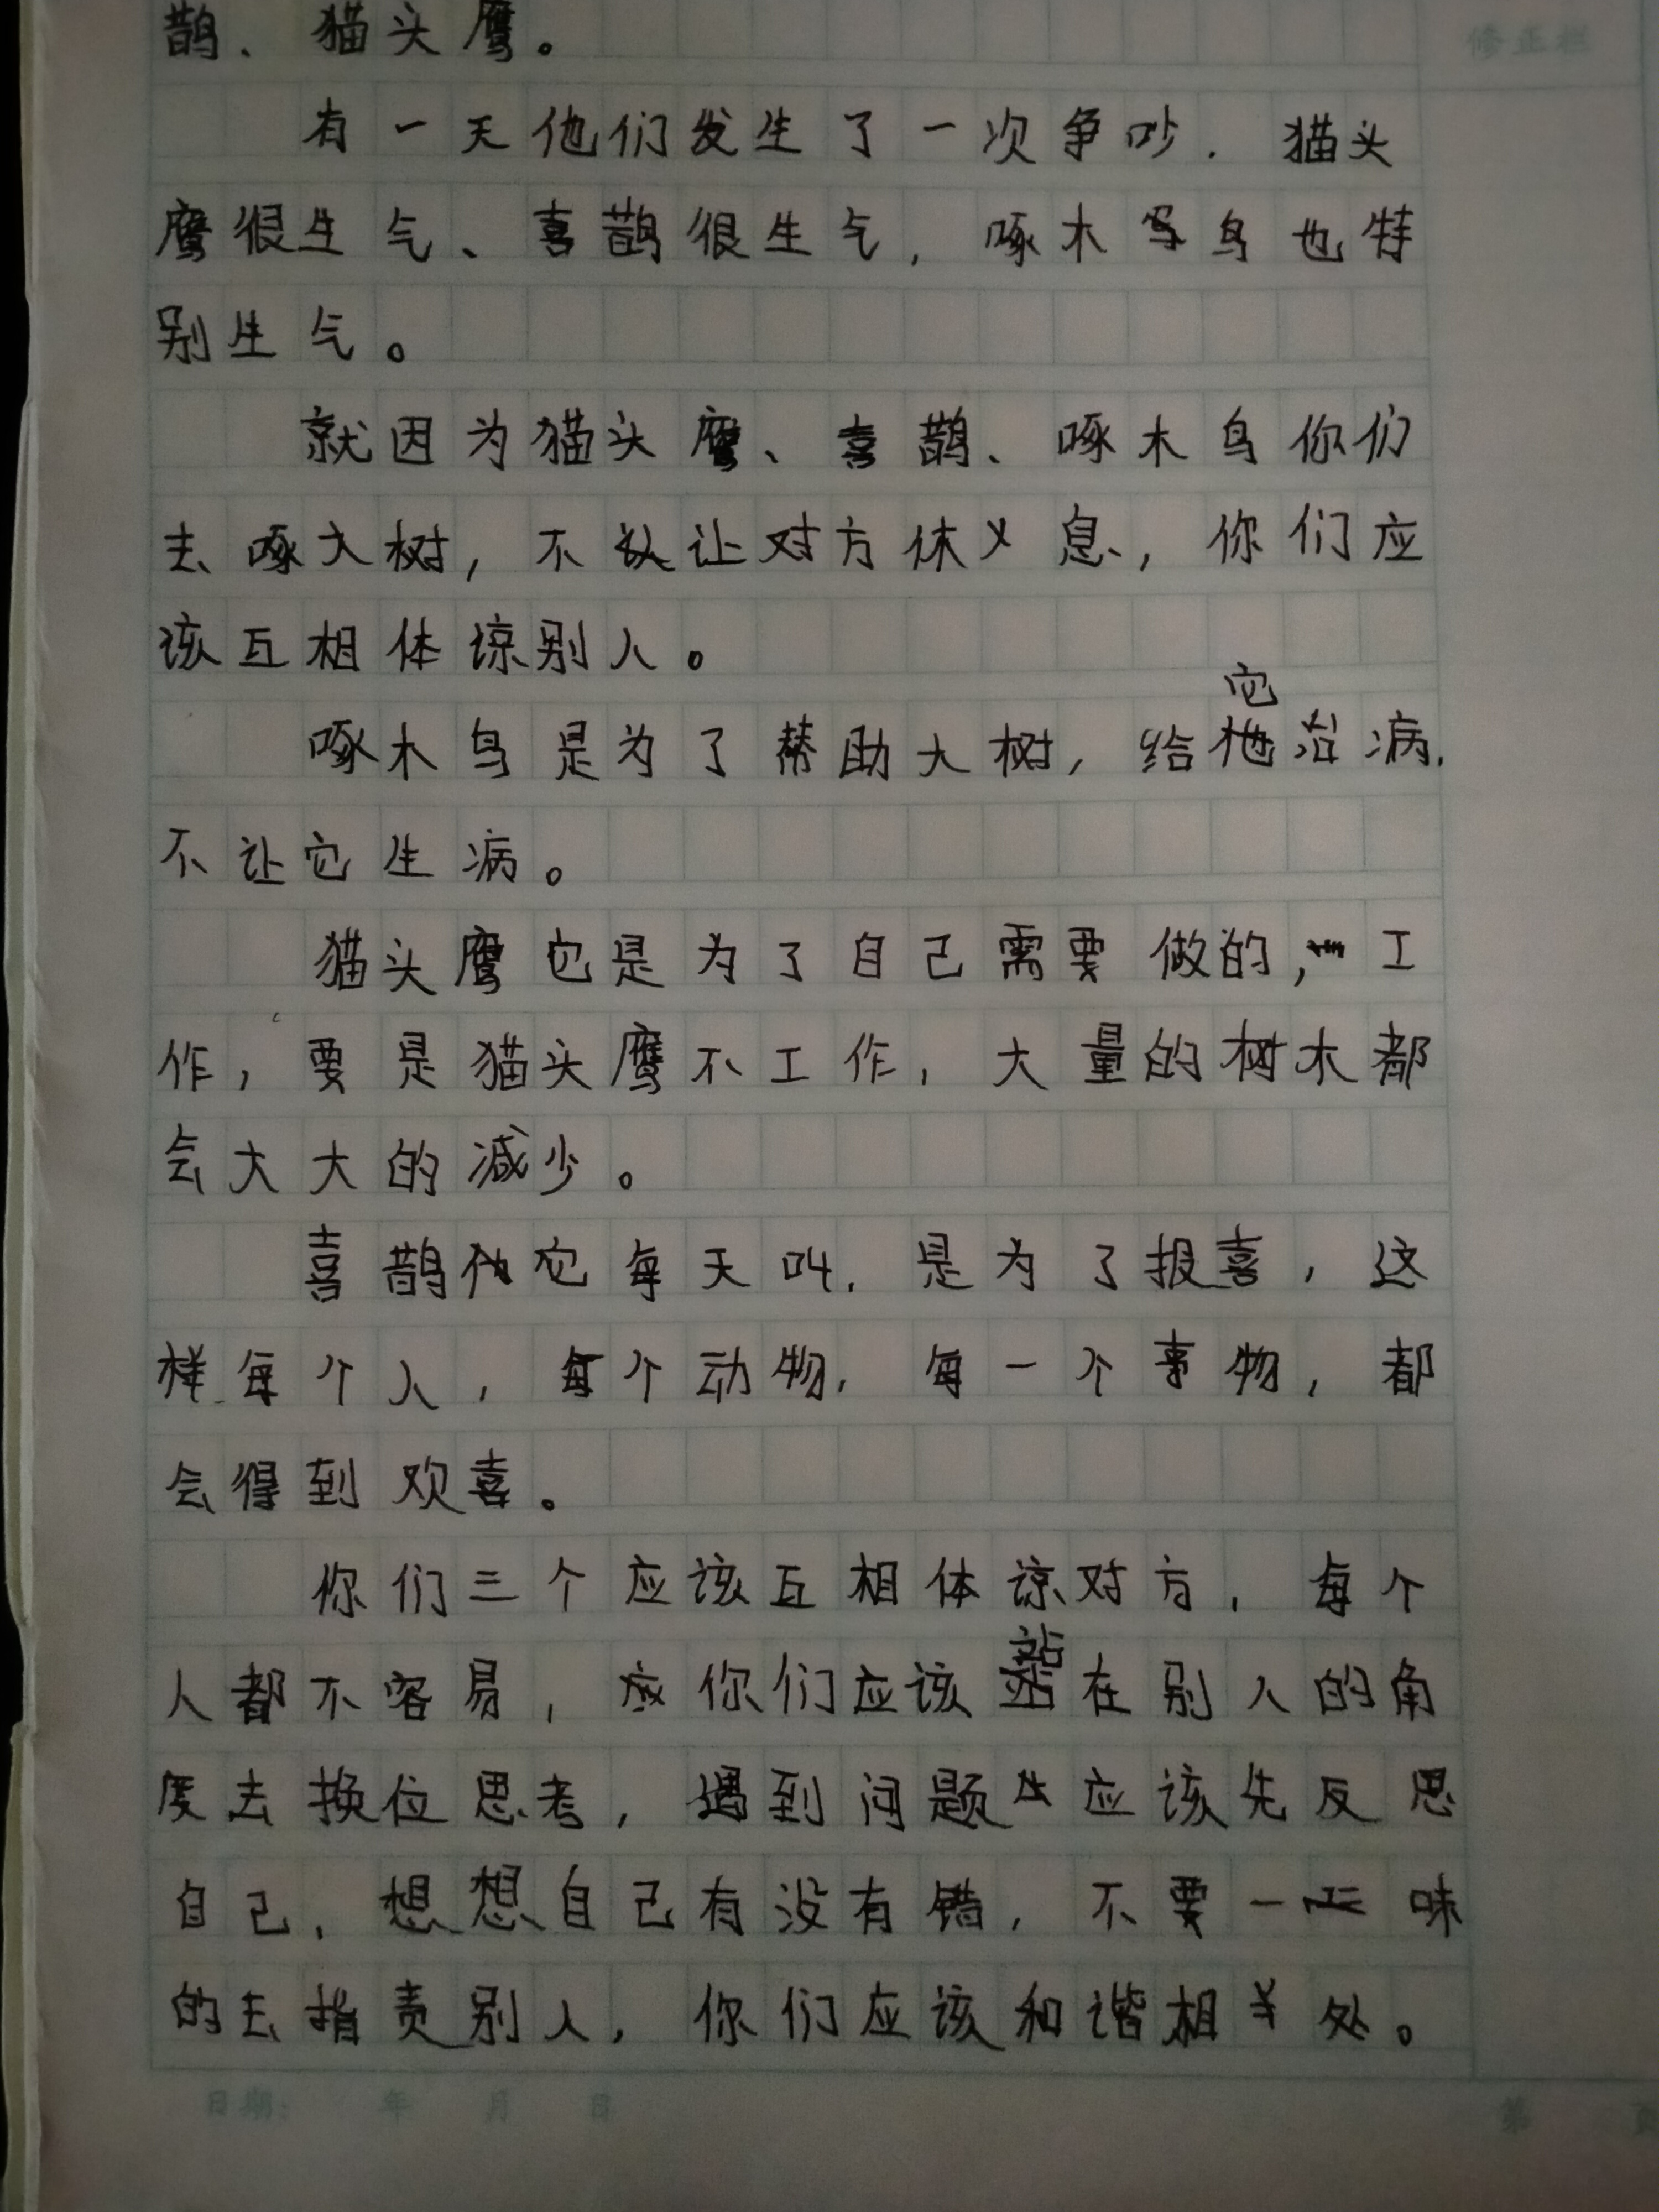 鹊、猫头鹰。
修正栏
有一天他们发生了一次争吵.猫头
鹰很生气、喜鹊很生气,啄木鸟也特
别生气。
就因为猫头鹰、喜鹊、啄木鸟你们
去啄大树,不让对方休息,你们应
该互相体谅别人。
啄木鸟是为了帮助大树,给它治病.
不让它生病。
猫头鹰它是为了自己需要做的,工
作,要是猫头鹰不工作,大量的树木都
会大大的减少。
喜鹊它每天叫.是为了报喜,这
样每个人,每个动物,每一个事物,都
会得到欢喜。
你们三个应该互相体谅对方,每个
人都不容易,你们应该站在别人的角
度去换位思考,遇到问题应该先反思
自己,想想自己有没有错,不要一味
的去指责别人,你们应该和谐相处。
日期: 年 月 日
第 页